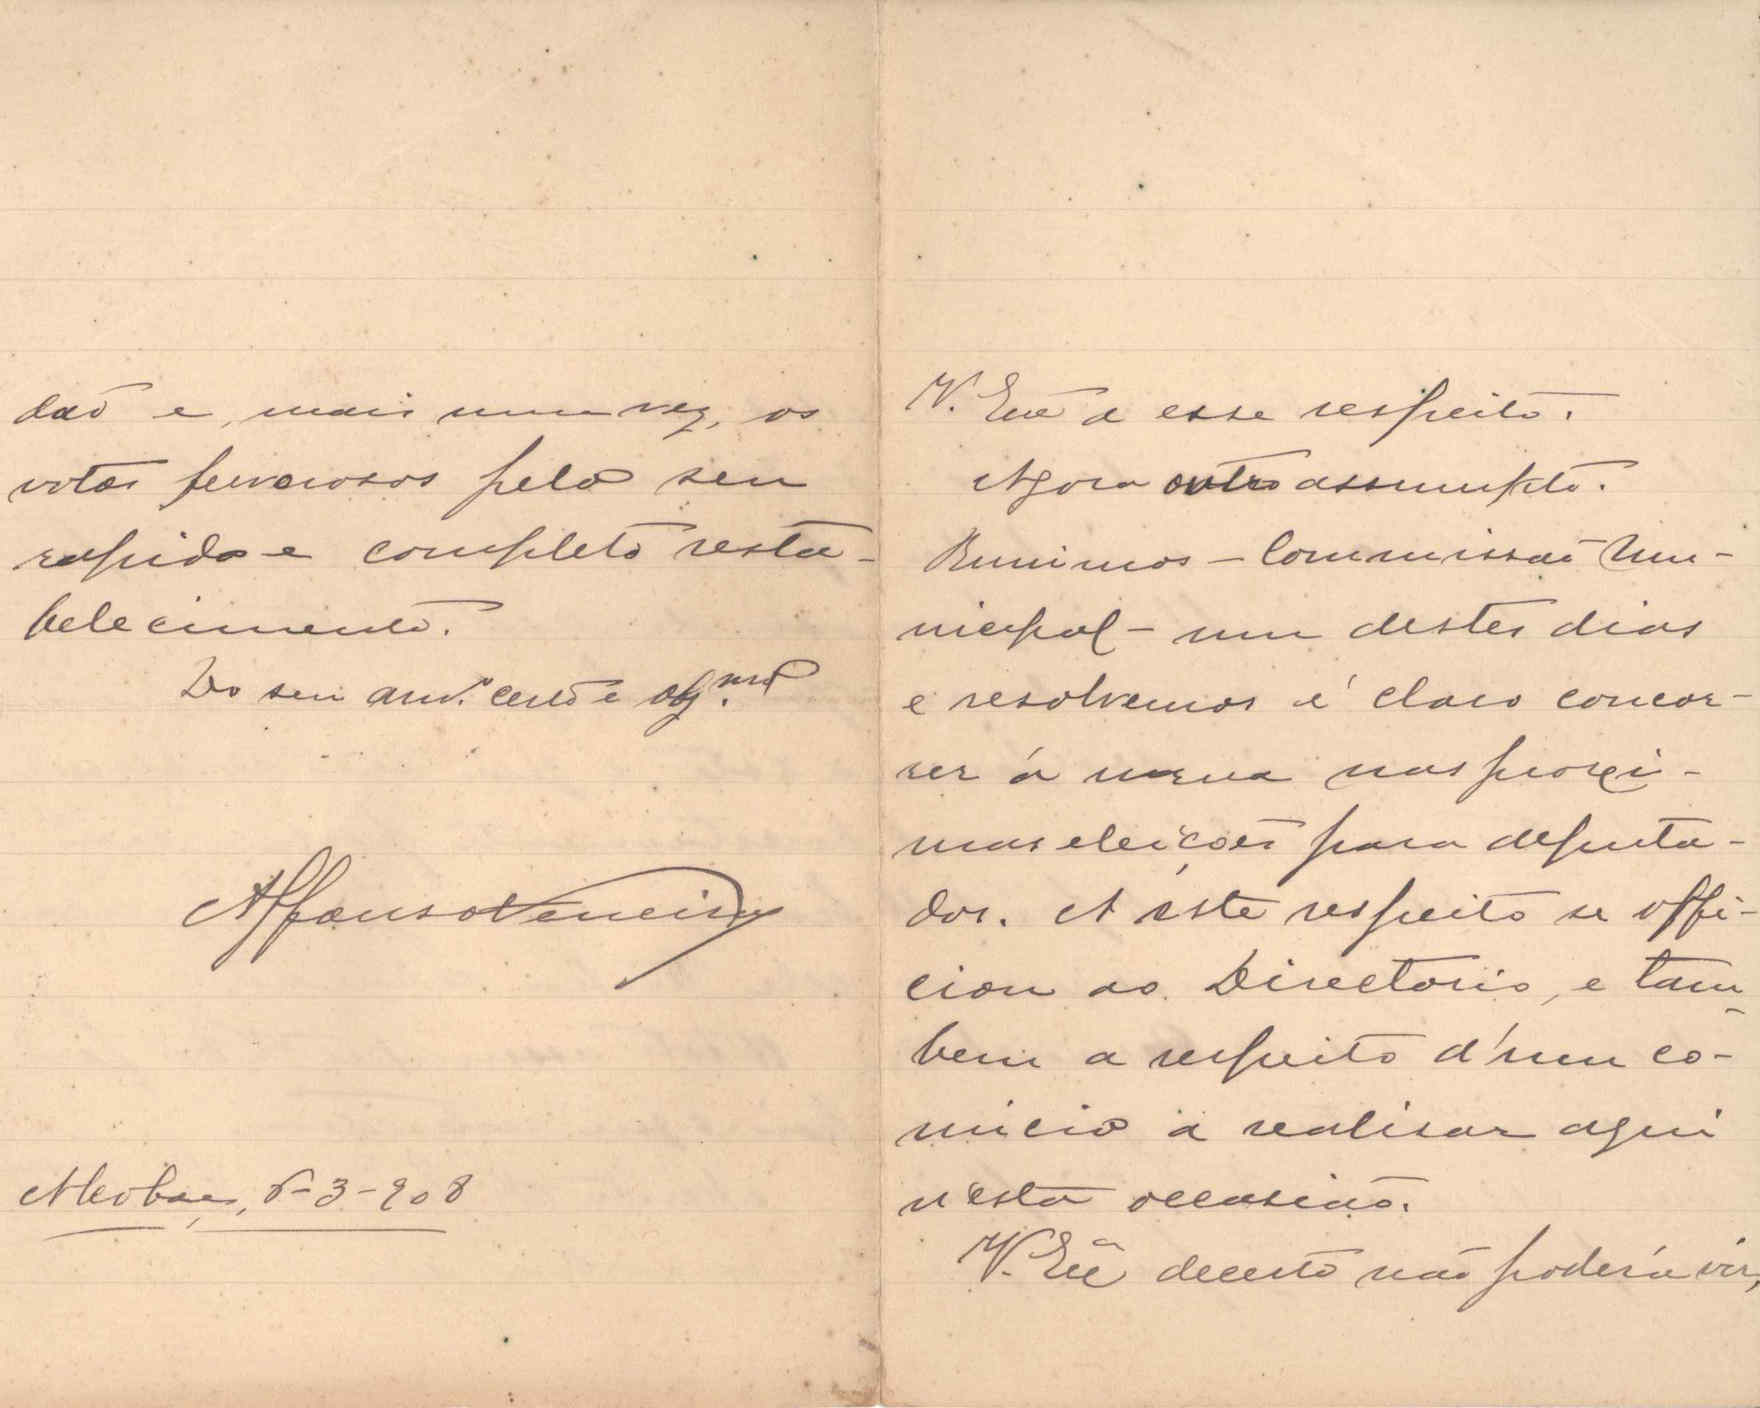 dão e, mais uma vez, os
votos fervorosos pelo seu
rapido e completo resta-
belecimento.
Do seu am.º certo e obg.mo
Affonso Ferreira
Alcobaça, 6-3-908
V. Exª a esse respeito.
Agora outro assumpto.
Reunimos - Commissão Mu-
nicipal - um destes dias
e resolvemos é claro concor-
rer á urna nas proxi-
mas eleições para deputa-
dos. A este respeito se offi-
ciou ao Directorio, e tam-
bem a respeito d'um co-
micio a realisar aqui
n'esta occasião.
V. Exª decerto não poderá vir,